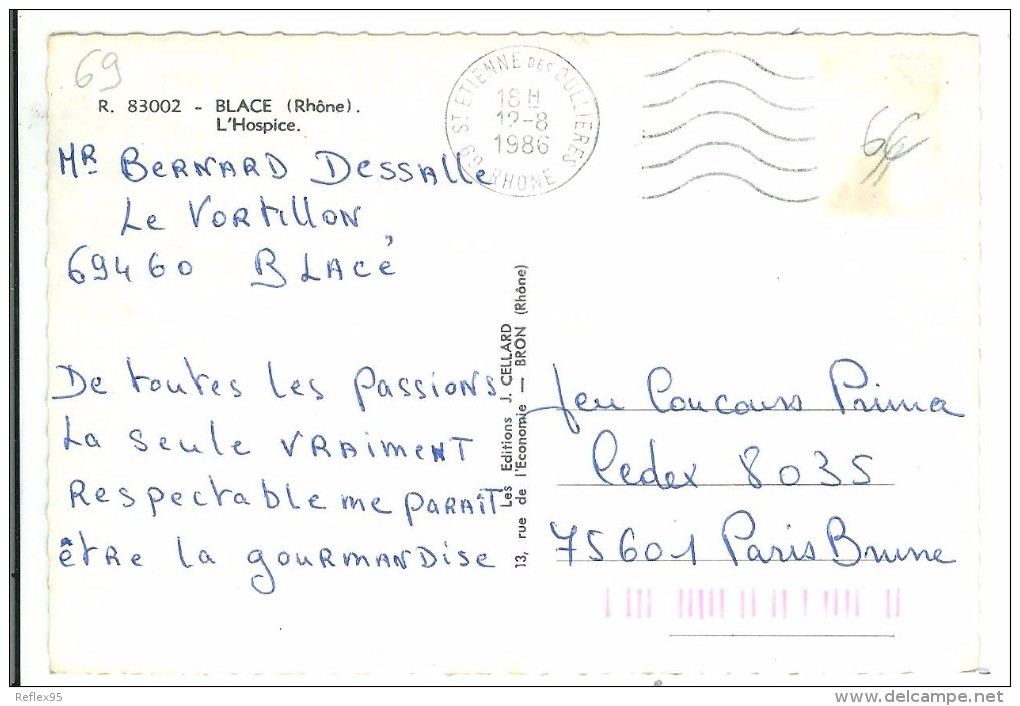 69
R. 83002 - BLACE (Rhône).
L'Hospice.
ST ETIENNE DES OULLIERES
18 H
12-8
1986
69 RHONE
6€
MR BERNARD DESSALLE
Le VORTILLON
69460 BLACÉ
De toutes les passions
La seule VRAIMENT
Respectable me PARAÎT
êtRe la gouRMANDise
Les Editions J. CELLARD
13, rue de l'Economie — BRON (Rhône)
Jeu Concours Prima
Cedex 8035
75601 Paris Brune
Reflex95
www.delcampe.net